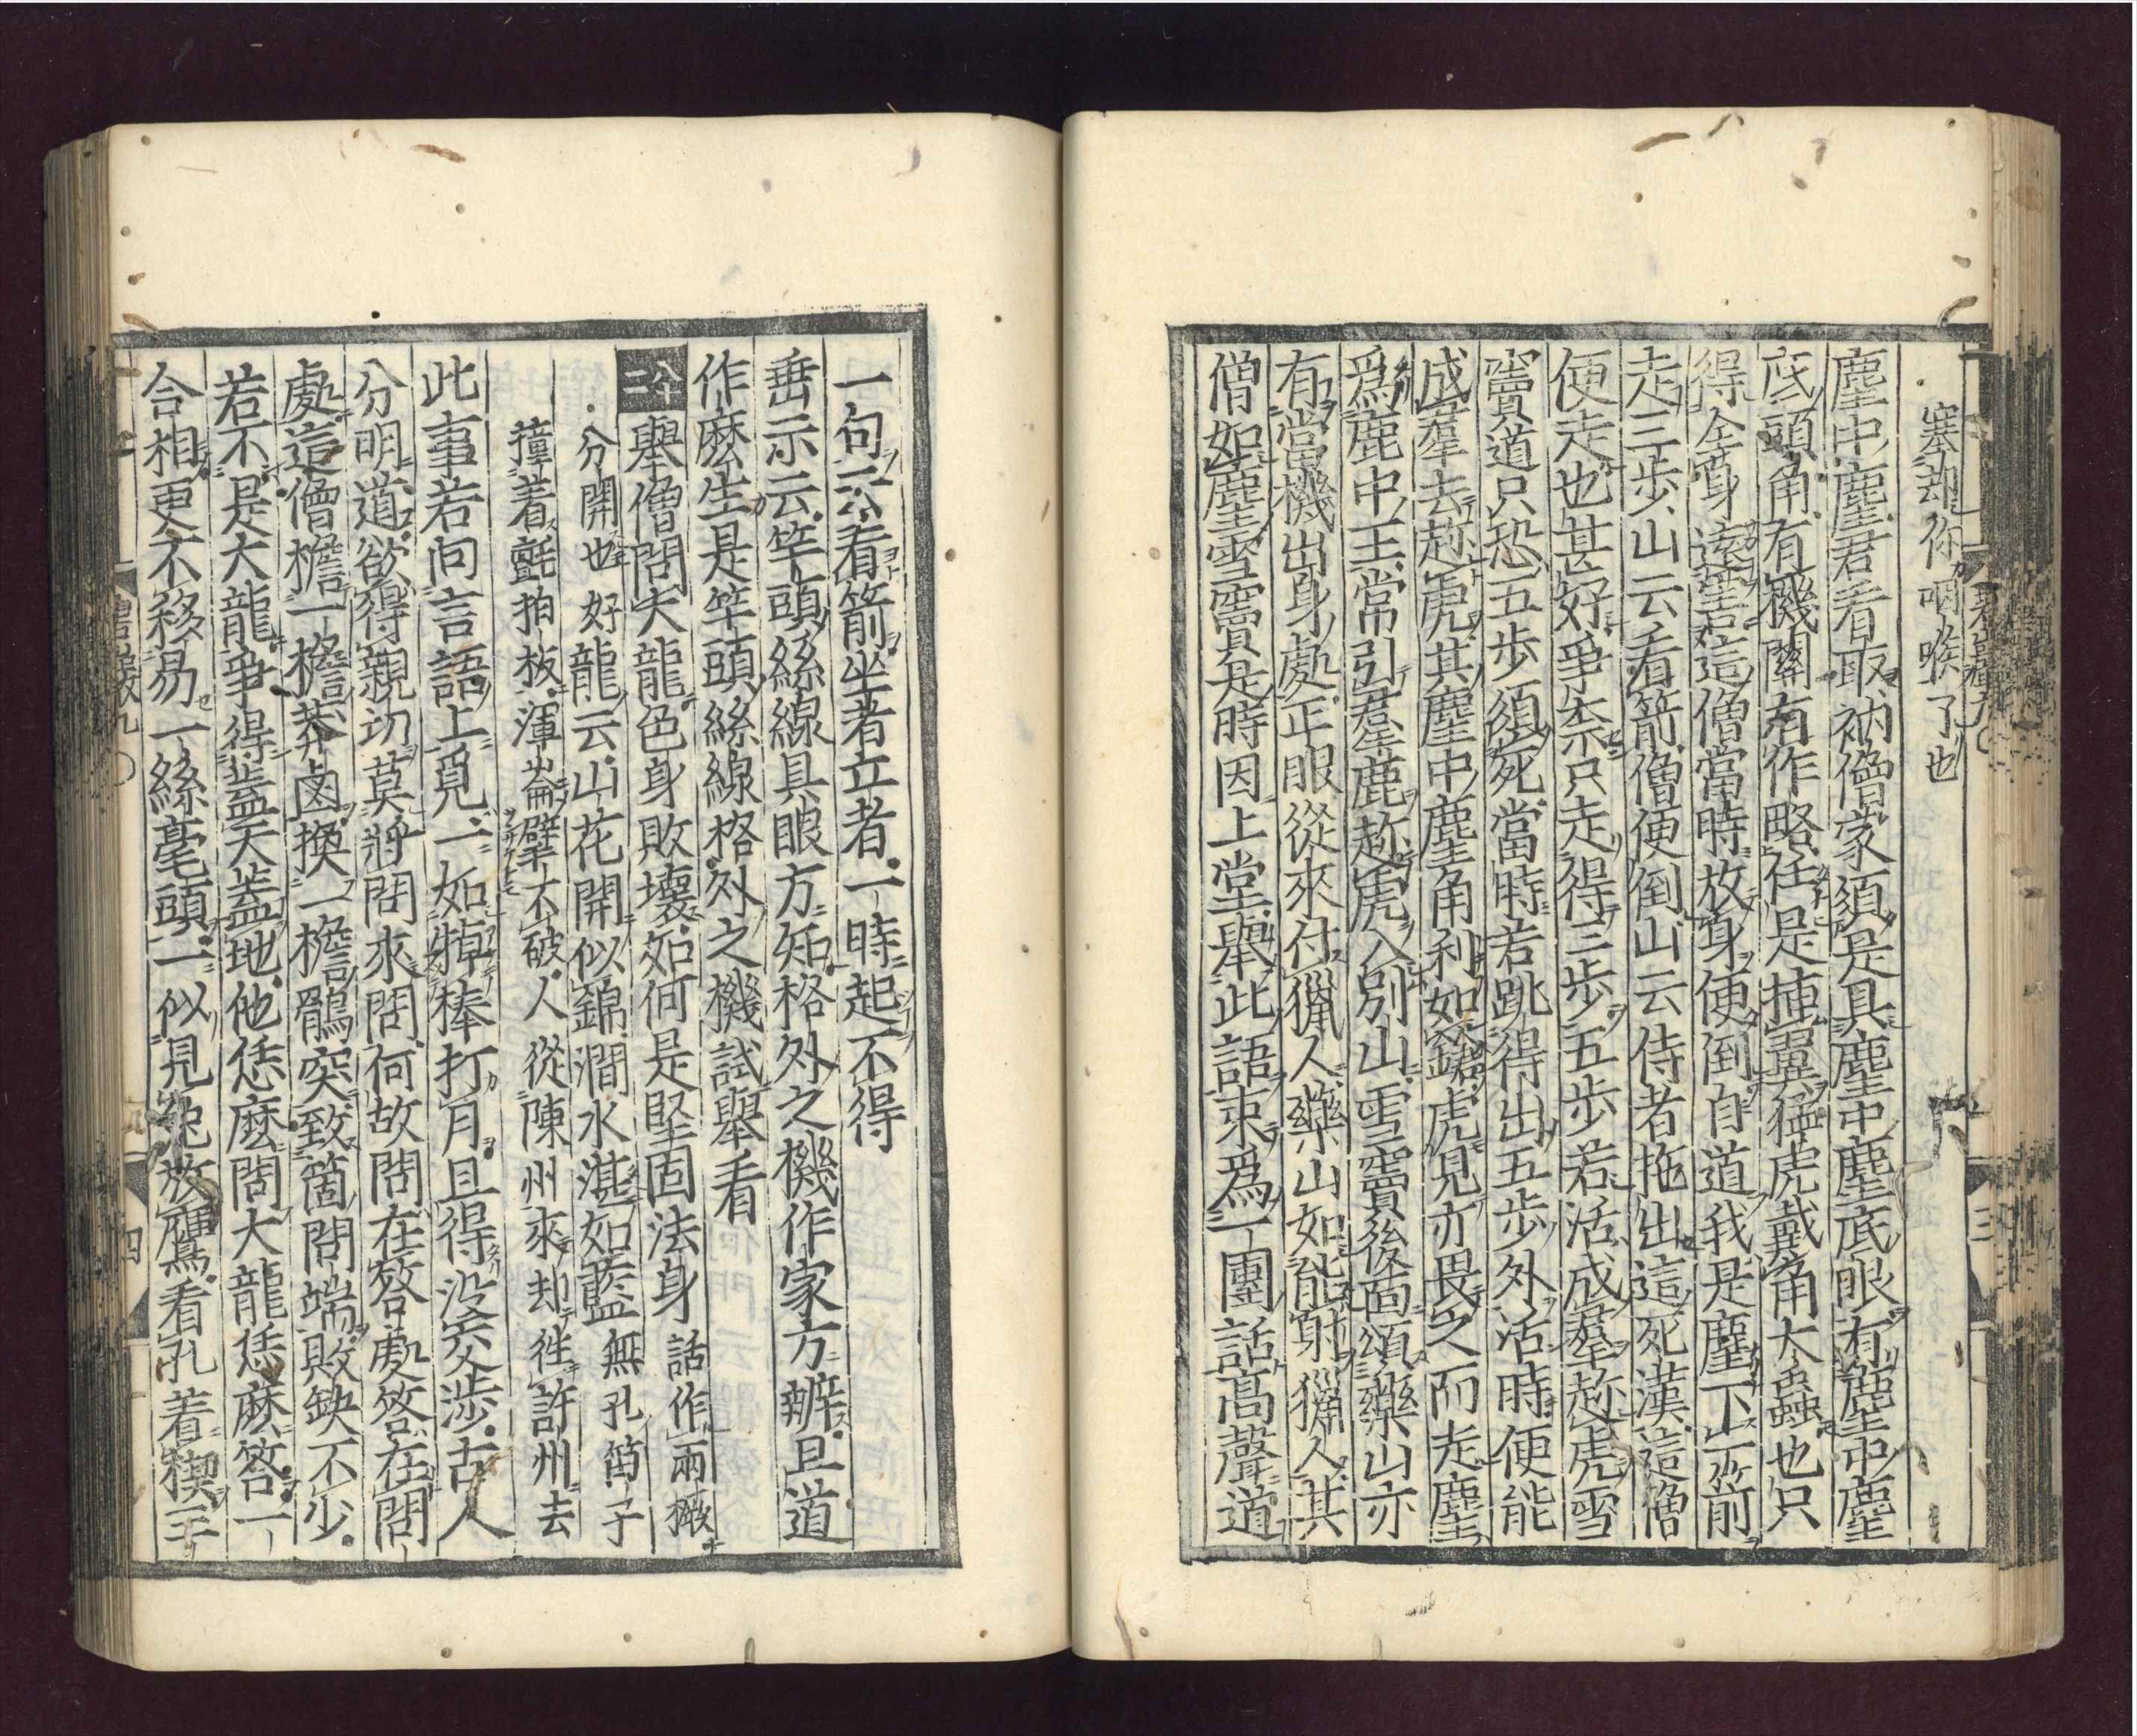 塞却你咽喉了也
塵中塵君看取衲僧家須是具塵中塵底眼有塵中塵
底頭角有機關有作略任是揷翼猛虎戴角大蟲也只
得全身遠害這僧當時放身便倒自道我是塵下山箭
走三步山云看箭僧便倒山云侍者拖出這死漢這僧
便走也甚好爭柰只走得三步五步若活成羣趂虎雪
竇道只恐五步須死當時若跳得出五步外活時便能
成羣去趂虎其塵中塵角利如鎗虎見亦畏之而走塵
爲鹿中王常引羣鹿趂虎入別山雪竇後面頌藥山亦
有當機出身處正眼從來付獵人藥山如能射獵人其
僧如塵雪竇是時因上堂擧此語束爲一團話高聲道
一句云看箭坐者立者一時起不得
垂示云竿頭絲線具眼方知格外之機作家方辨且道
作麽生是竿頭絲線格外之機試擧看
八十二
擧僧問大龍色身敗壞如何是堅固法身 話作兩橛
分開也好龍云山花開似錦澗水湛如藍 無孔笛子
撞着氈拍板渾崙擘不破人從陳州來却徃許州去
此事若向言語上覓一如掉棒打月且得沒交渉古人
分明道欲得親切莫將問來問何故問在答處答在問
處這僧檐一檐莽鹵換一檐鶻突致箇問端敗缺不少
若不是大龍爭得蓋天蓋地他恁麽問大龍恁麽答一
合相更不移易一絲毫頭一似見兔放鷹看孔着楔三
碧巖九 三
碧巖九 四